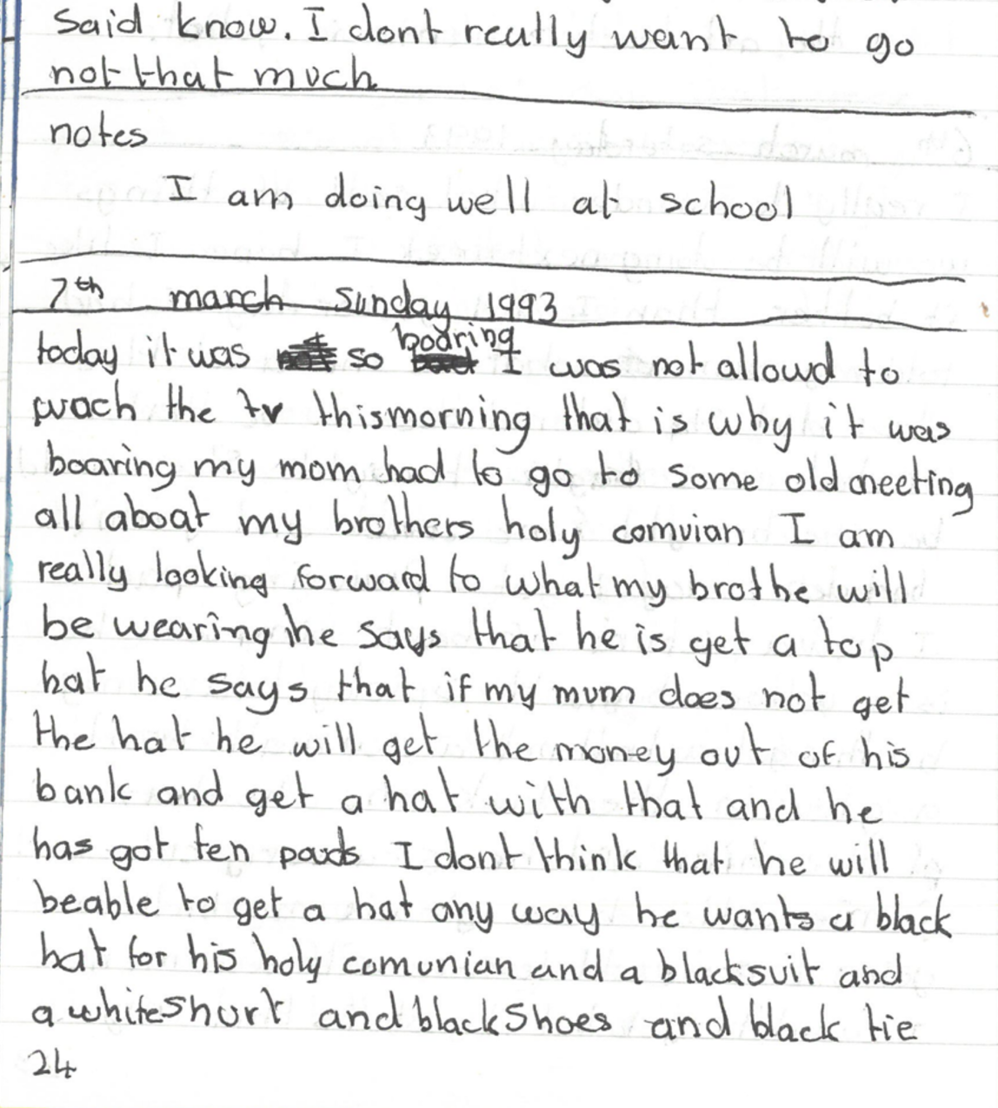 said know. I dont really want to go
not that much
notes
I am doing well at school
7th march sunday 1993
today it was so boaring I was not allowd to
wach the tv thismorning that is why it was
boaring my mom had to go to some old meeting
all aboat my brothers holy comvian I am
really looking forward to what my brothe will
be wearing he says that he is get a top
hat he says that if my mum does not get
the hat he will get the money out of his
bank and get a hat with that and he
has got ten pauds I dont think that he will
beable to get a hat any way he wants a black
hat for his holy comunian and a blacksuit and
a whiteshurt and blackshoes and black tie
24